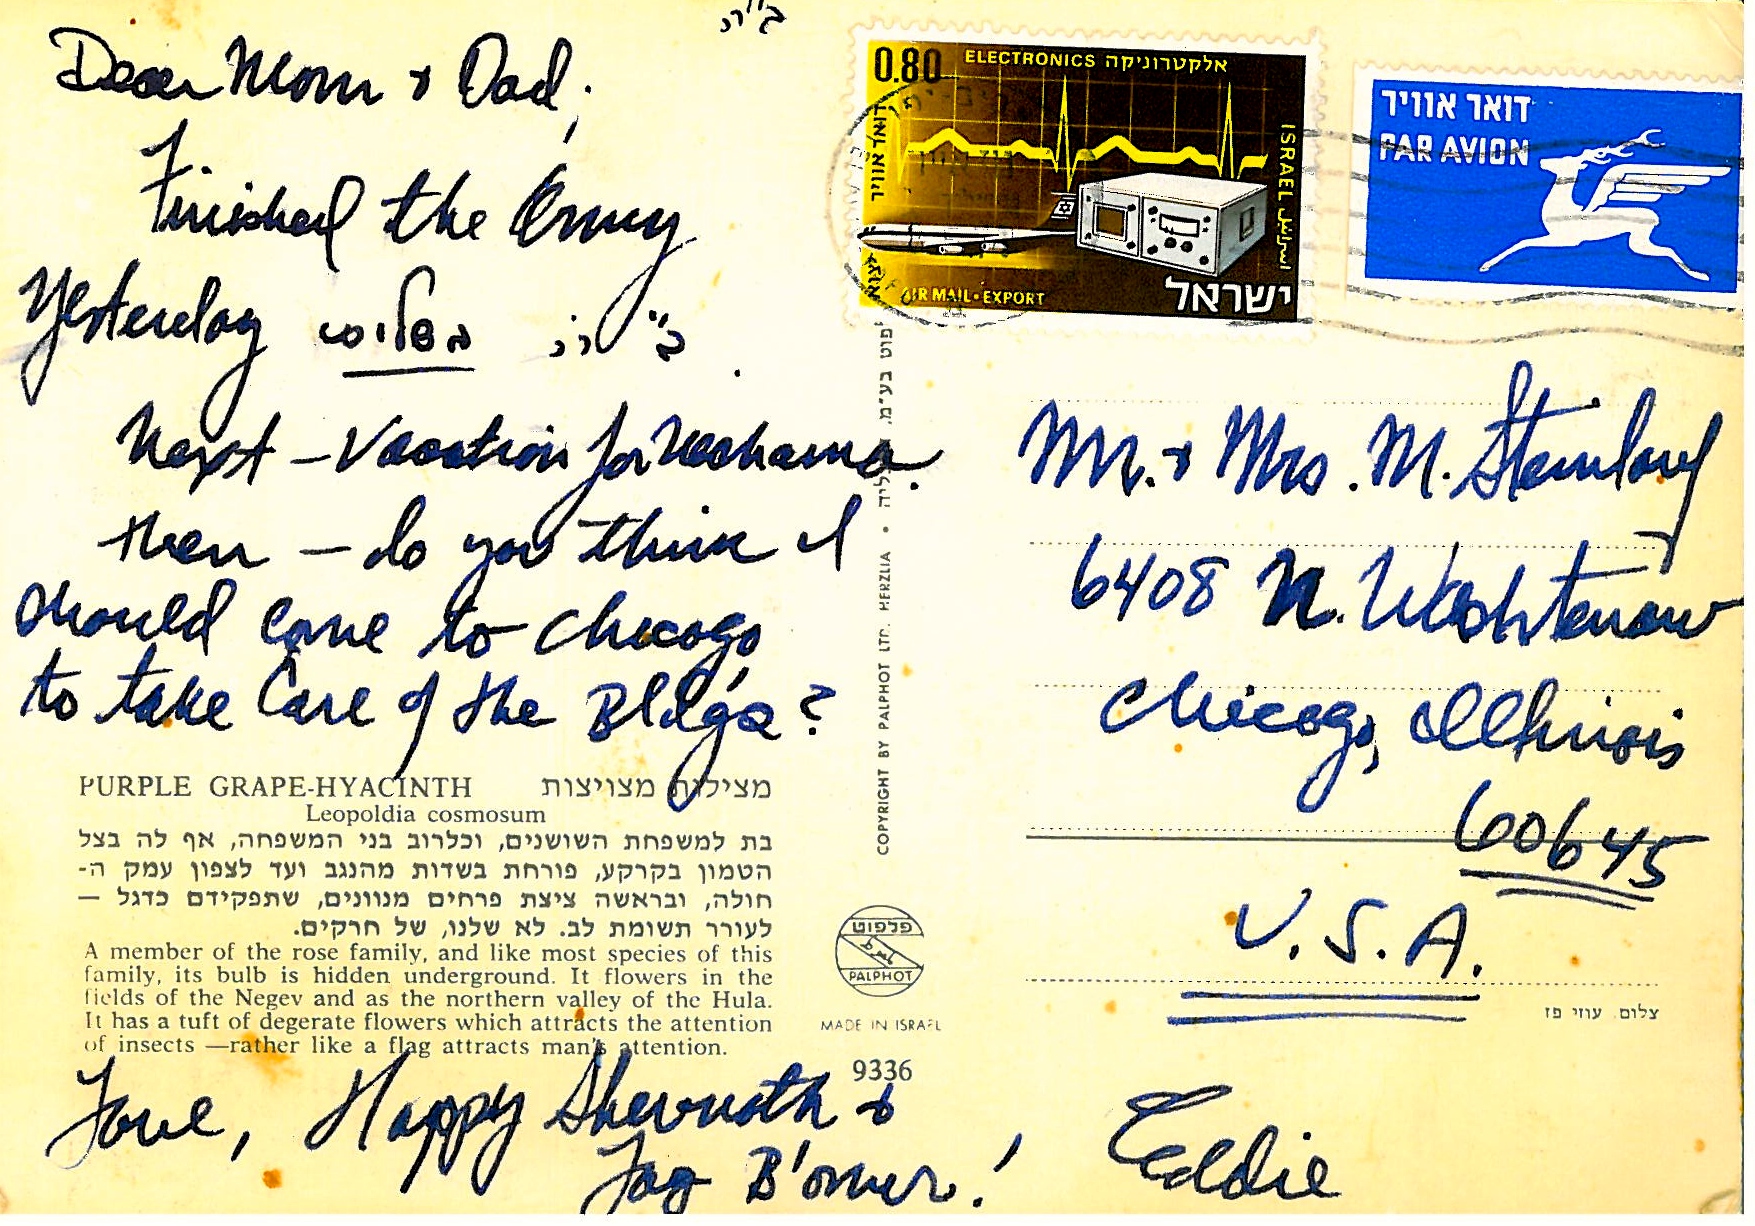 ב"ה
Dear Mom & Dad,
Finished the Army
Yesterday בשלימות ב"ה.
Next – Vacation for Nechama.
Then – do you think I
should come to Chicago
to take Care of the Bldgs?
PURPLE GRAPE-HYACINTH מצילות מצויצות
Leopoldia cosmosum
בת למשפחת השושנים, וכלרוב בני המשפחה, אף לה בצל
הטמון בקרקע, פורחת בשדות מהנגב ועד לצפון עמק ה-
חולה, ובראשה ציצת פרחים מנוונים, שתפקידם כדגל —
לעורר תשומת לב. לא שלנו, של חרקים.
A member of the rose family, and like most species of this
family, its bulb is hidden underground. It flowers in the
fields of the Negev and as the northern valley of the Hula.
It has a tuft of degerate flowers which attracts the attention
of insects —rather like a flag attracts man's attention.
Love, Happy Shevuoth &
Lag B'omer!
Eddie
COPYRIGHT BY PALPHOT LTD. HERZLIA •
בע"מ.
פלפוט
PALPHOT
MADE IN ISRAEL
9336
0.80 ELECTRONICS אלקטרוניקה
דואר אוויר
ISRAEL اسرائيل
AIR MAIL • EXPORT
ישראל
דואר אוויר
PAR AVION
Mr. & Mrs. M.
6408 N. Washtenaw
Chicago, Illinois
60645
U.S.A.
צלום: עוזי פז